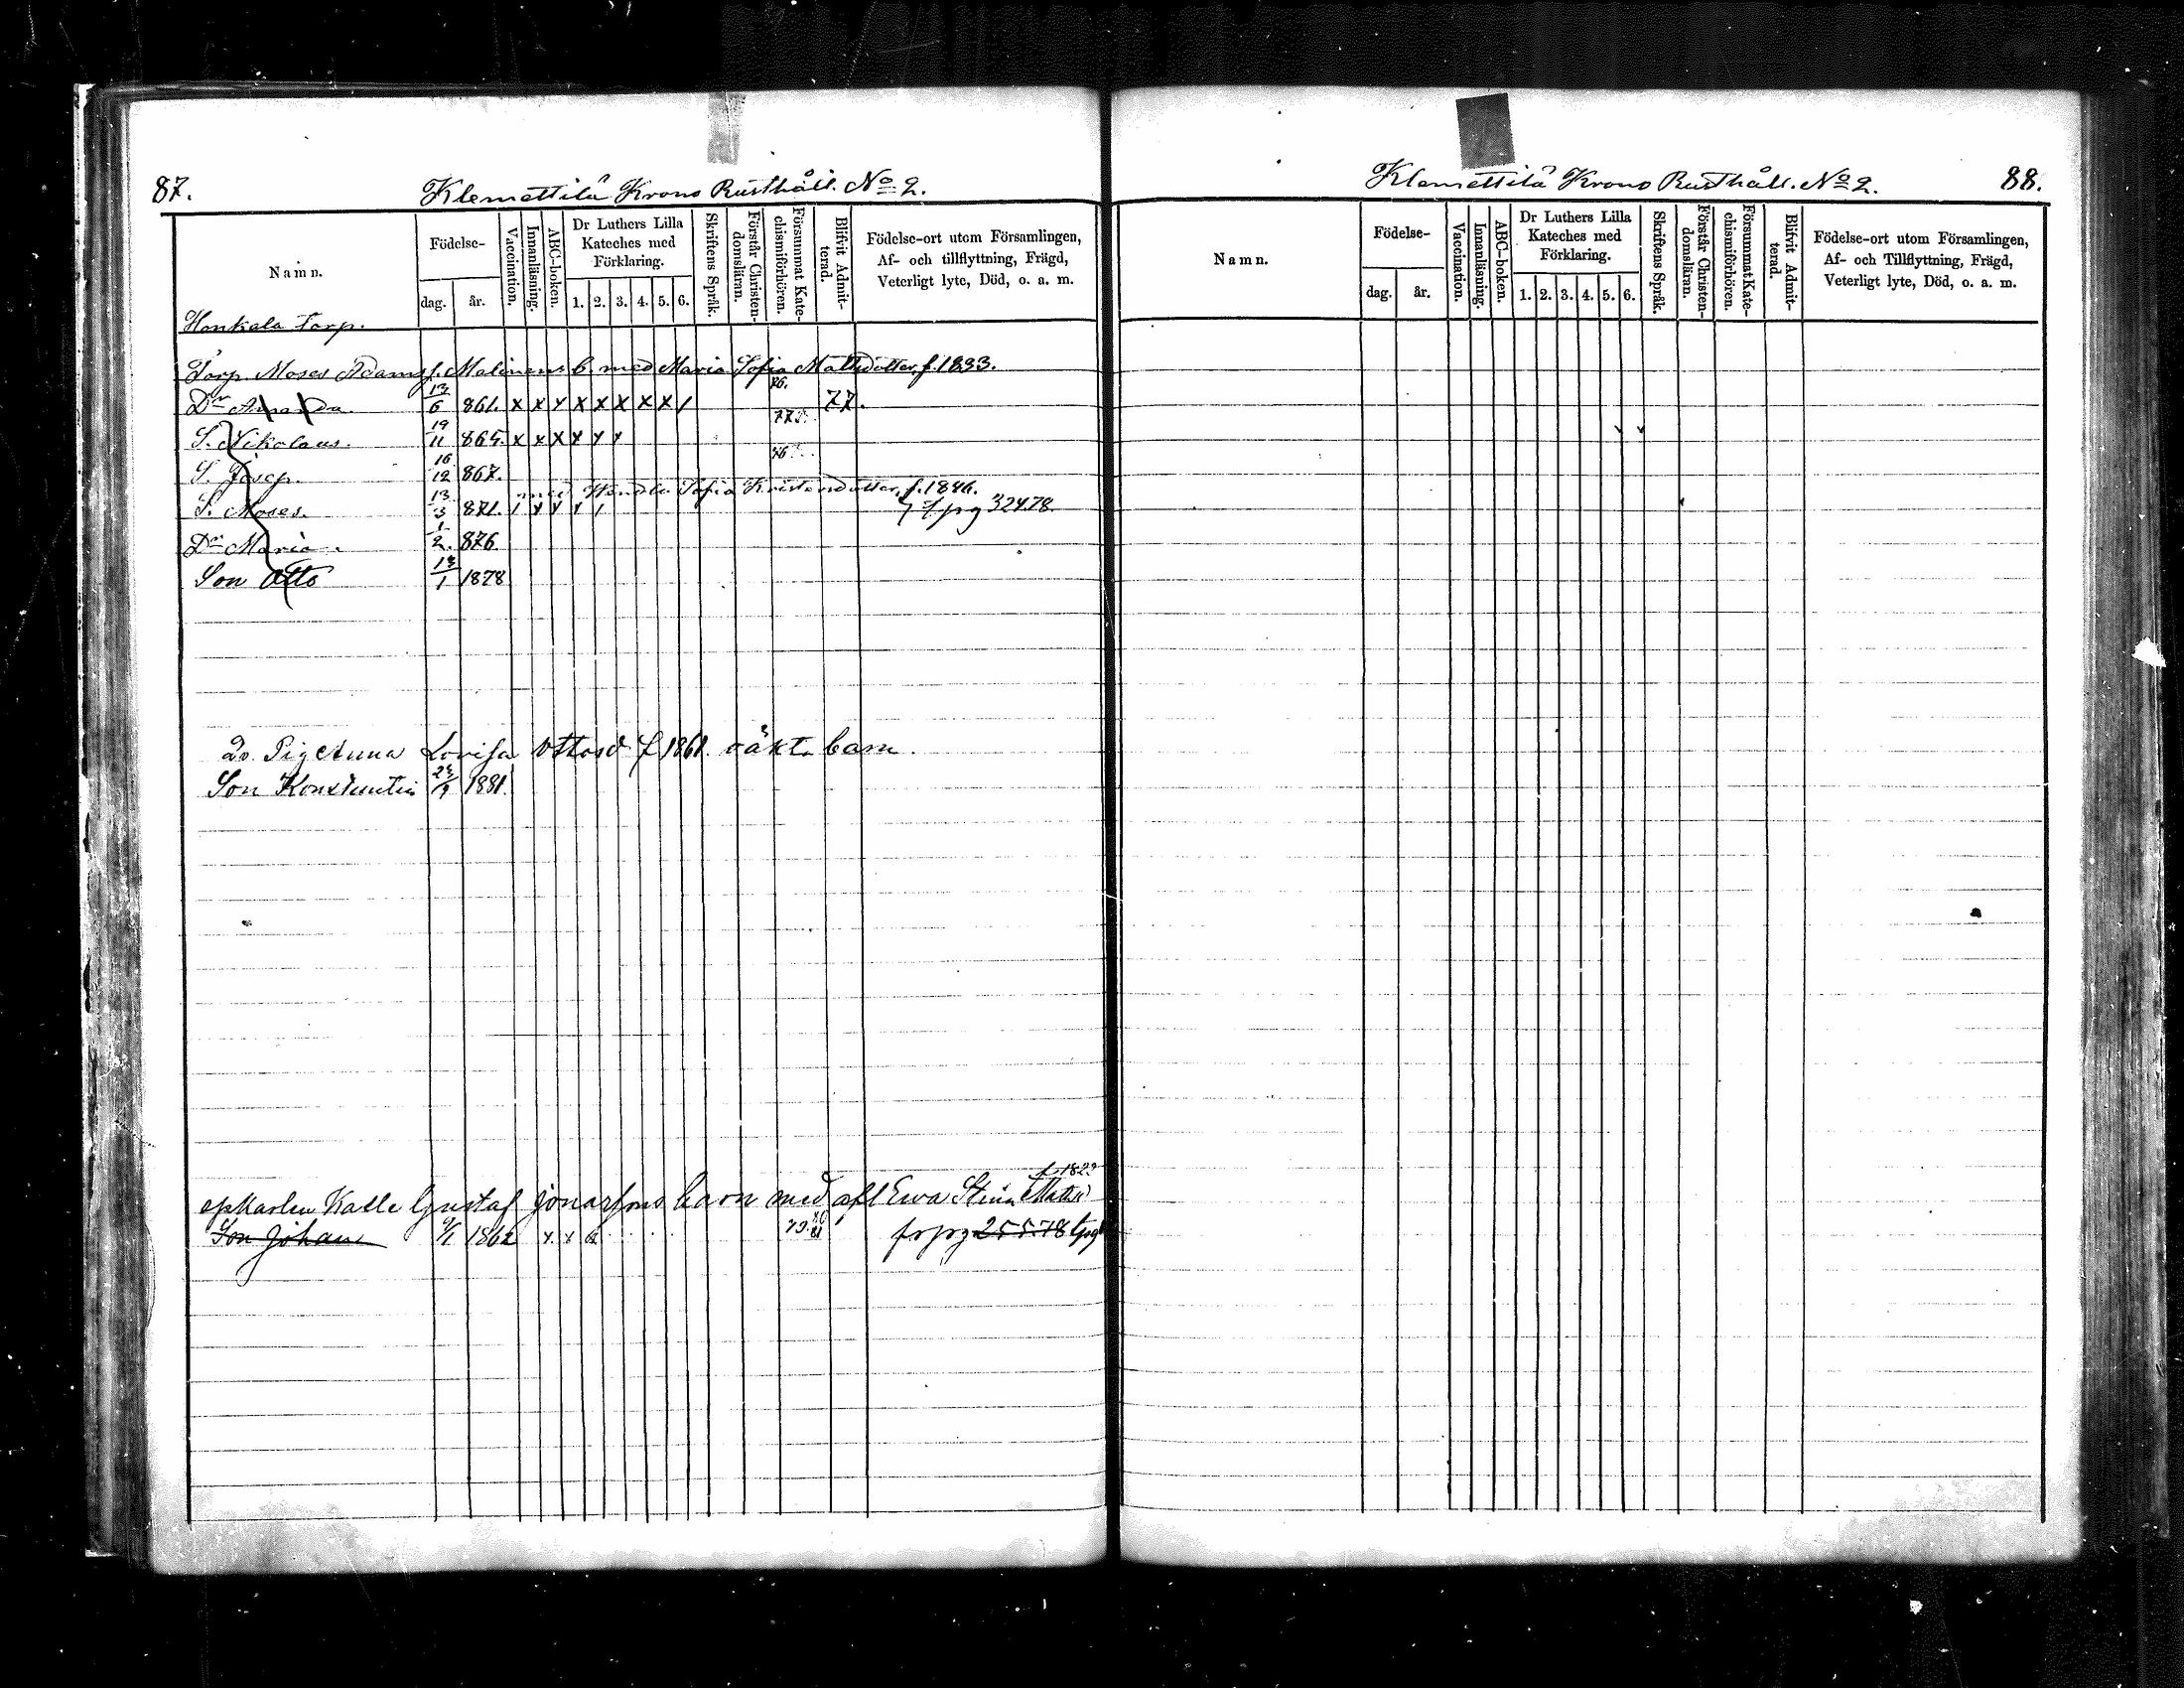 87.
Klemettilä Krono Rusthåll. No 2.
Namn.
Födelse-
dag.
år.
Vaccination.
Innanläsning.
ABC-boken.
Dr Luthers Lilla Kateches med Förklaring.
1. 2. 3. 4. 5. 6.
Skriftens Språk.
Förstår Christen-domsläran.
Försummat Kate-chismiförhören.
Blifvit Admit-terad.
Födelse-ort utom Församlingen,
Af- och tillflyttning, Frägd,
Veterligt lyte, Död, o. a. m.
Honkala Torp.
Torp. Moses Adamsf. Malinens b. med Maria Sofia Mattsdotter f. 1833.
Dr Amanda. 13/6 861. x x x x x x x x / 76. 77.
S. Nikolaus. 19/11 865. x x x x x x 77
S. Josep. 16/12 867. 76
med Wendla Sofia Kristersdotter, f. 1846.
S. Moses. 13/3 871. / x x x /
324.78.
Dr Maria. 1/2. 876.
Son Otto 13/1 1878
Pig Anna Lovisa Ottosd f 1861. oäkta barn.
Son Konstantin 1881.
Kalle Gustaf Jonasfons barn med Ewa Stina
Son Johan 1862 x x
255.78
88.
Klemettilä Krono Rusthåll. No 2.
Namn.
Födelse-
dag.
år.
Vaccination.
Innanläsning.
ABC-boken.
Dr Luthers Lilla Kateches med Förklaring.
1. 2. 3. 4. 5. 6.
Skriftens Språk.
Förstår Christen-domsläran.
Försummat Kate-chismiförhören.
Blifvit Admit-terad.
Födelse-ort utom Församlingen,
Af- och Tillflyttning, Frägd,
Veterligt lyte, Död, o. a. m.